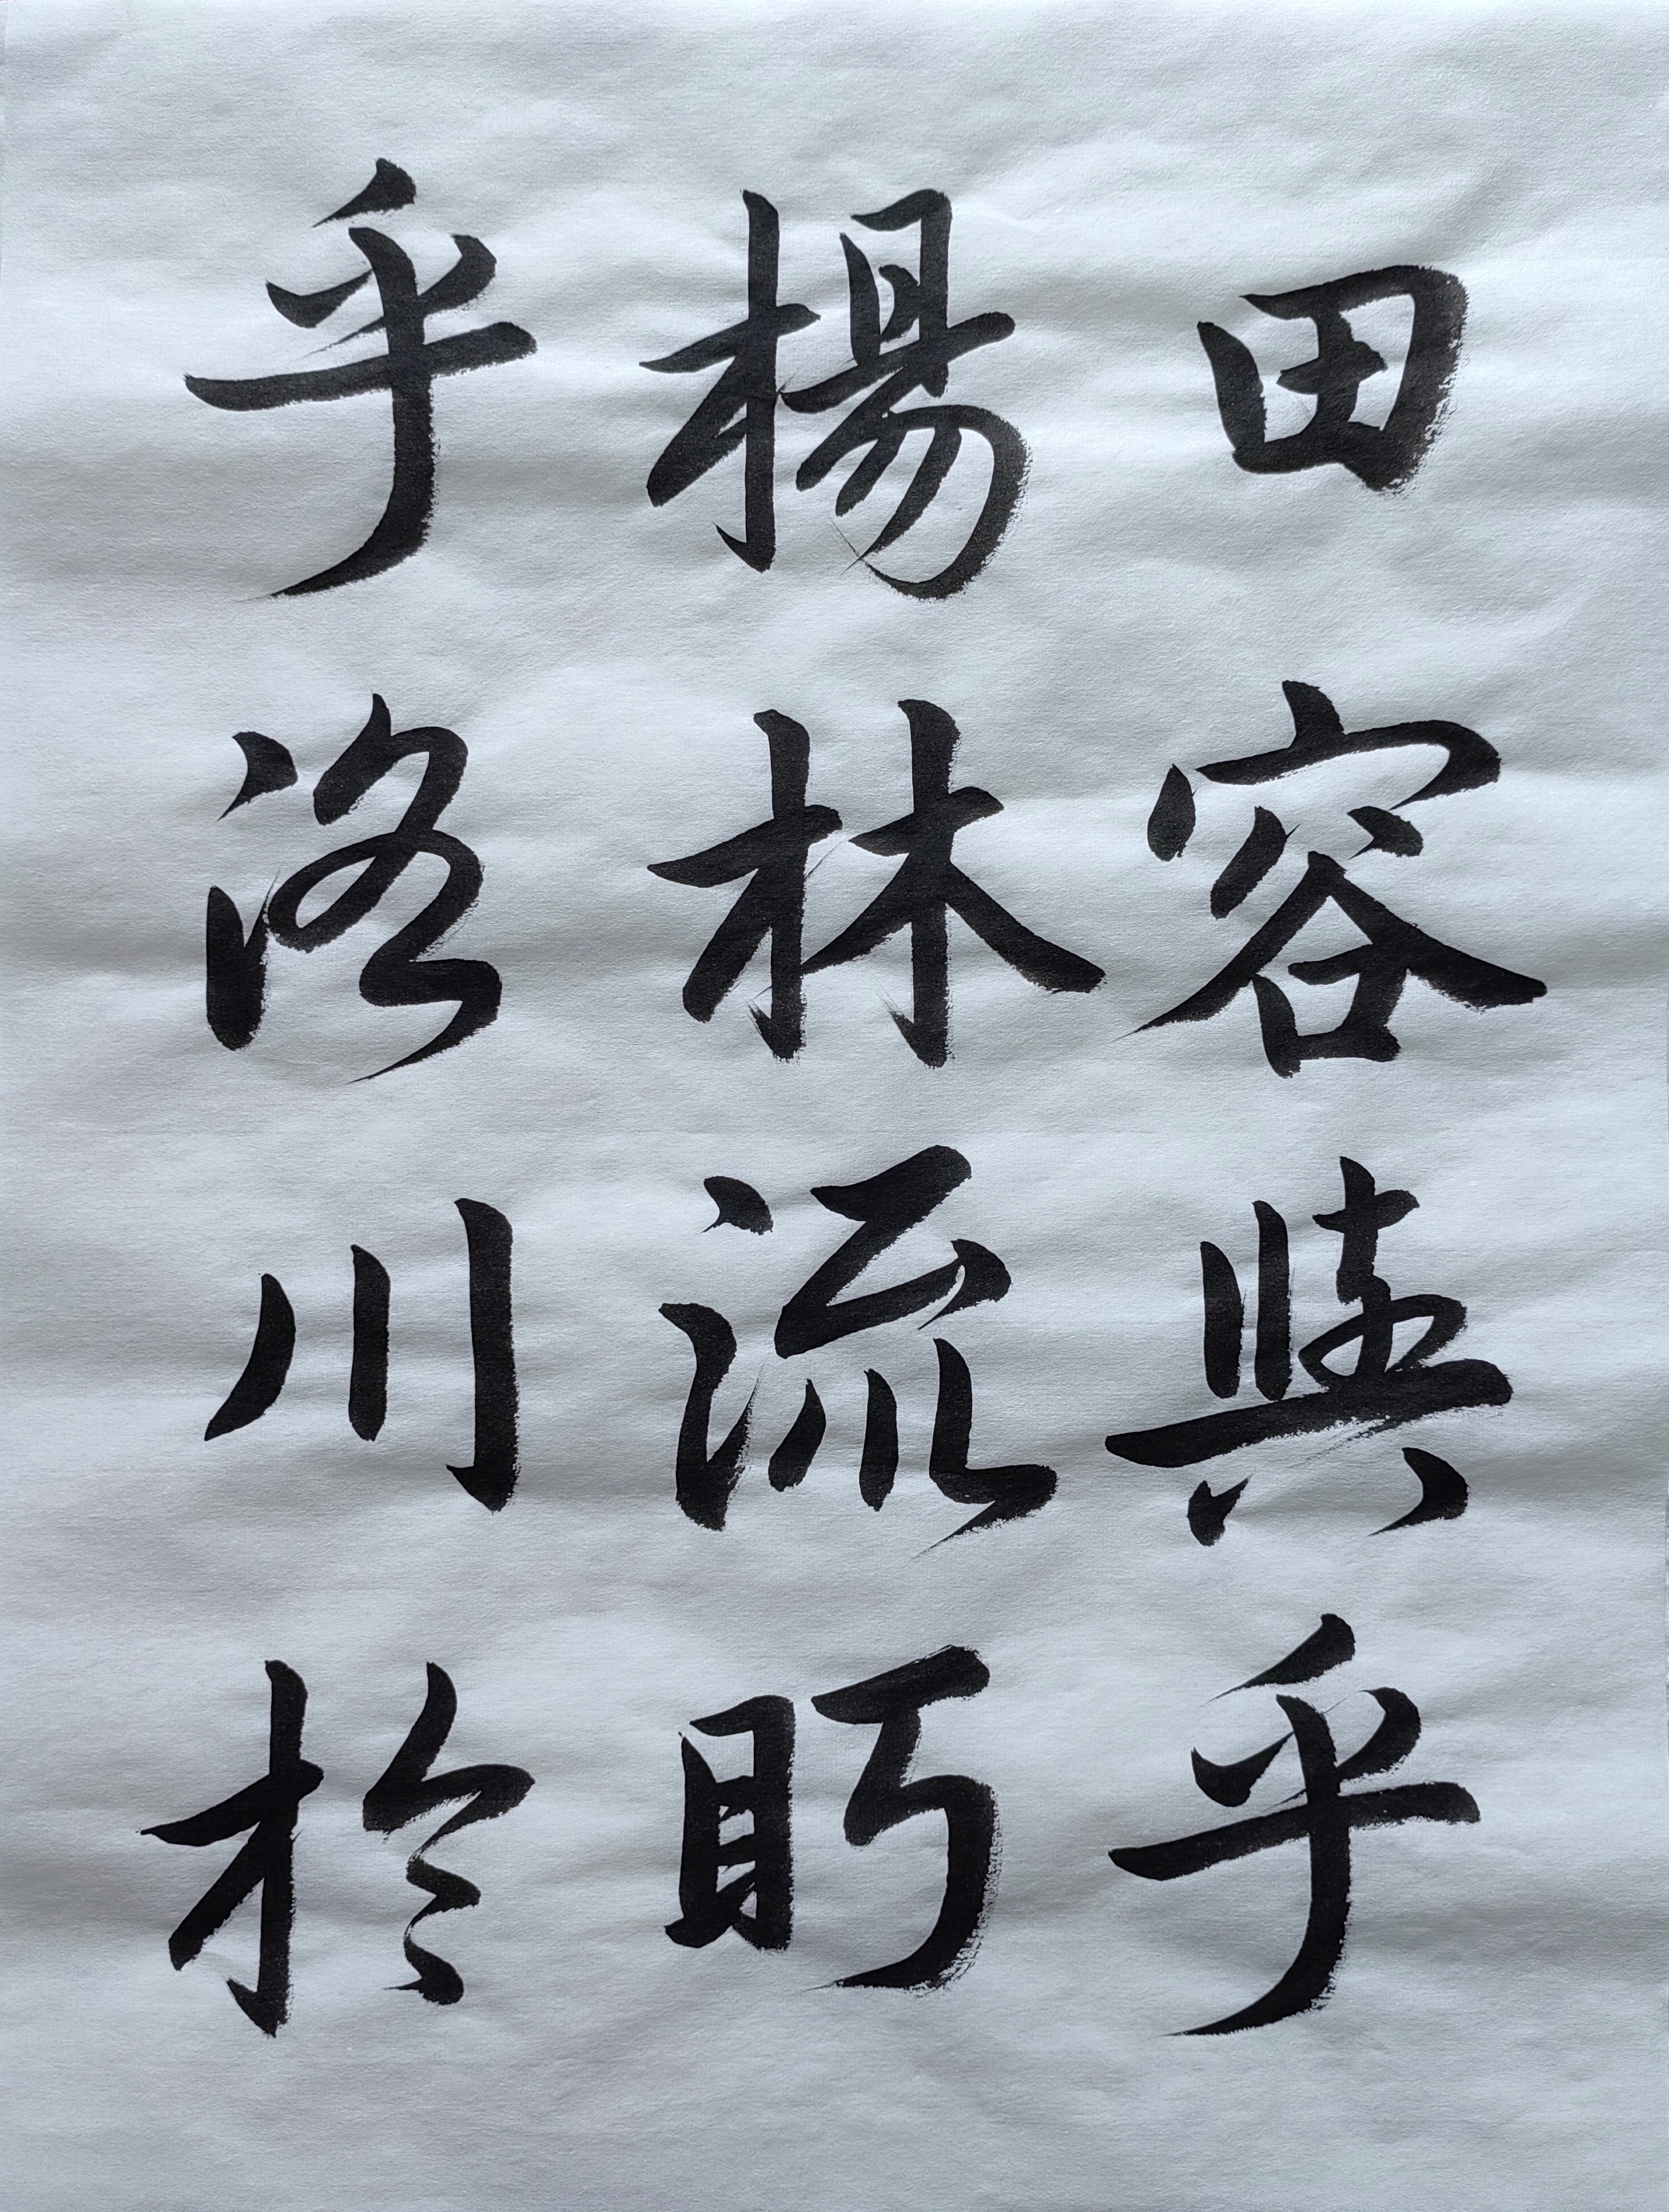 田容與乎
楊林流眄
乎洛川於